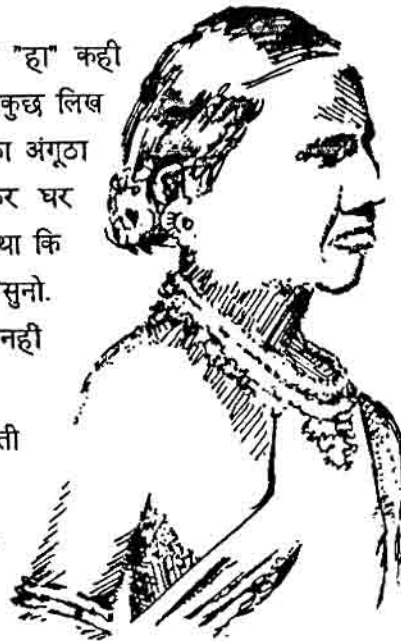 "हा" कही
कुछ लिख
अंगूठा
घर
था कि
सुनो.
नही
ती